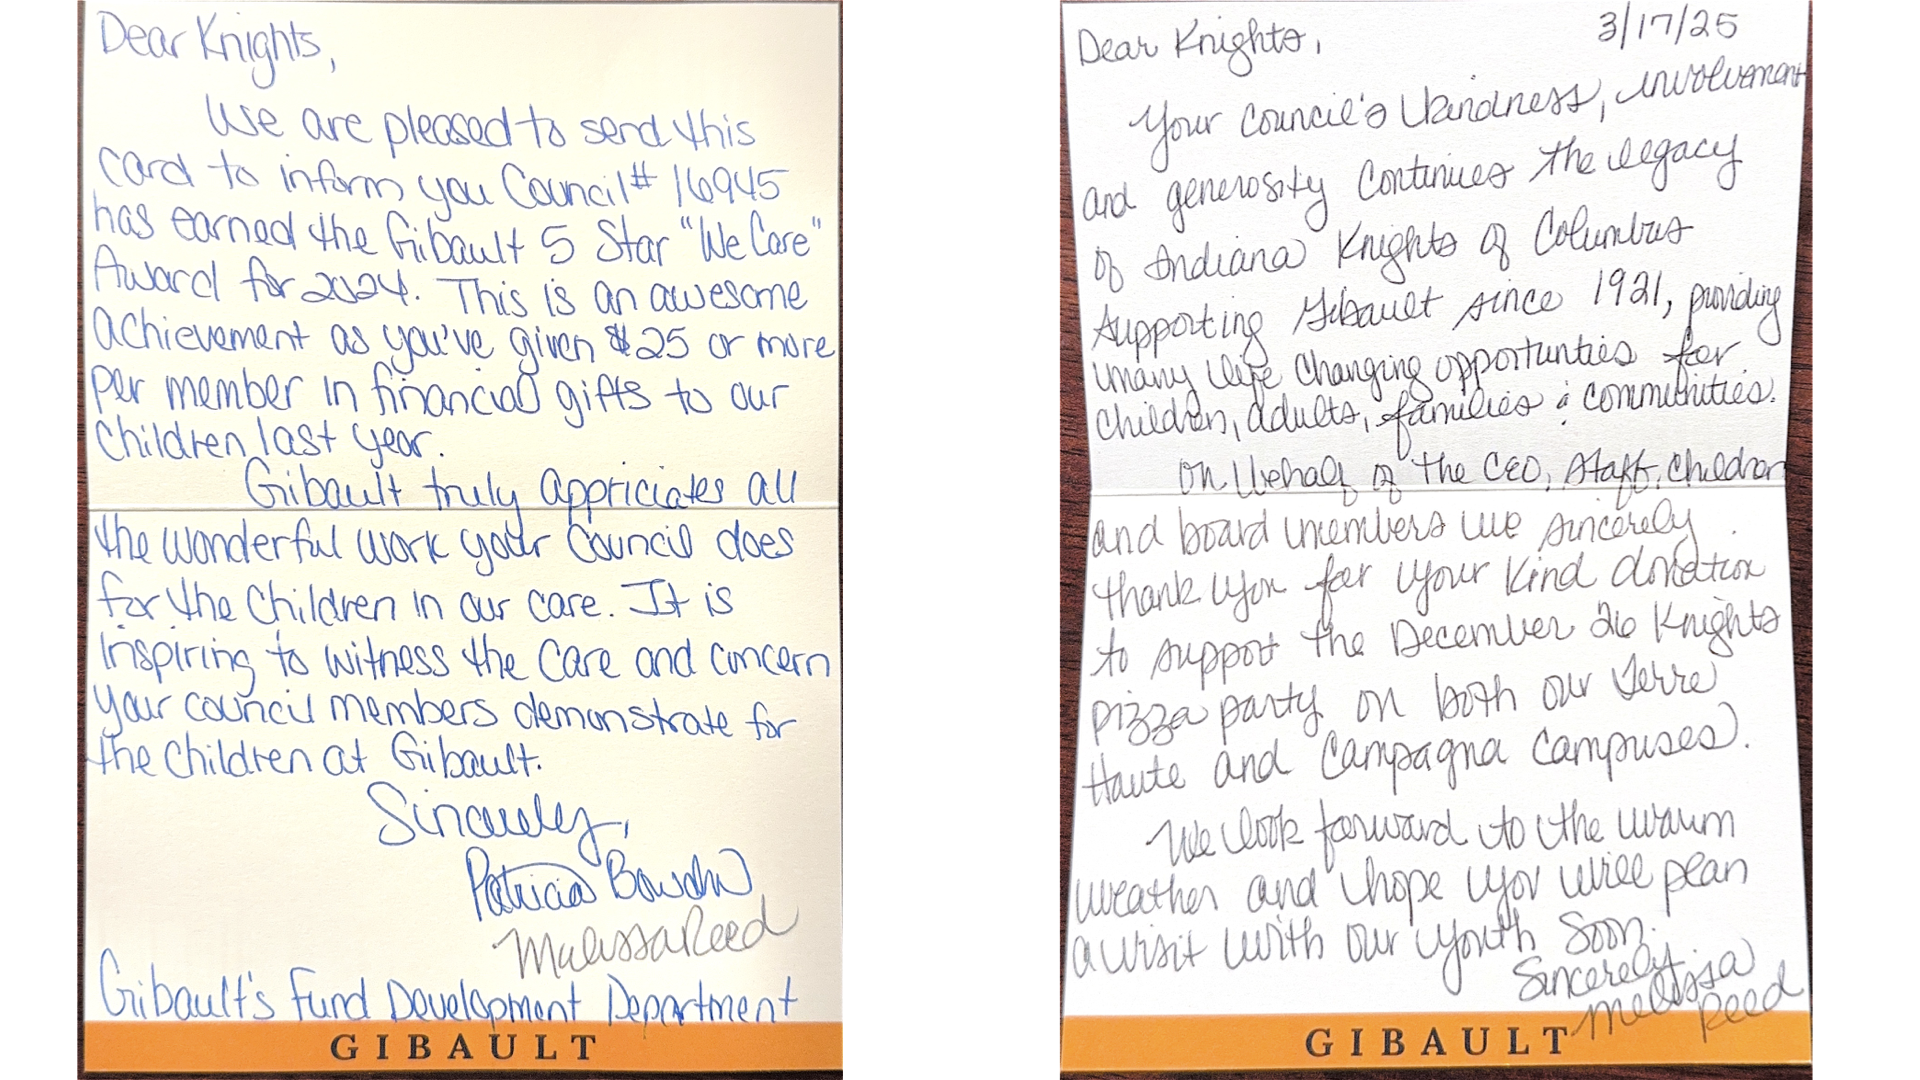 Dear Knights,
We are pleased to send this
card to inform you Council# 16945
has earned the Gibault 5 Star "We Care"
Award for 2024. This is an awesome
achievement as you've given $25 or more
per member in financial gifts to our
children last year.
Gibault truly appriciates all
the wonderful work your Council does
for the children in our care. It is
inspiring to witness the care and concern
your council members demonstrate for
the children at Gibault.
Sincerely,
Patricia
Melissa Reed
Gibault's Fund Development Department
GIBAULT
3/17/25
Dear Knights,
Your Council's kindness, involvement
and generosity continues the legacy
of Indiana Knights of Columbus
supporting Gibault since 1921, providing
many life changing opportunties for
children, adults, families & communities.
On behalf of the CEO, staff, children
and board members we sincerely
thank you for your kind donation
to support the December 26 Knights
pizza party on both our Terre
Haute and Campagna campuses).
We look forward to the warm
weather and hope you will plan
a visit with our youth soon.
Sincerely,
Melissa
Reed
GIBAULT